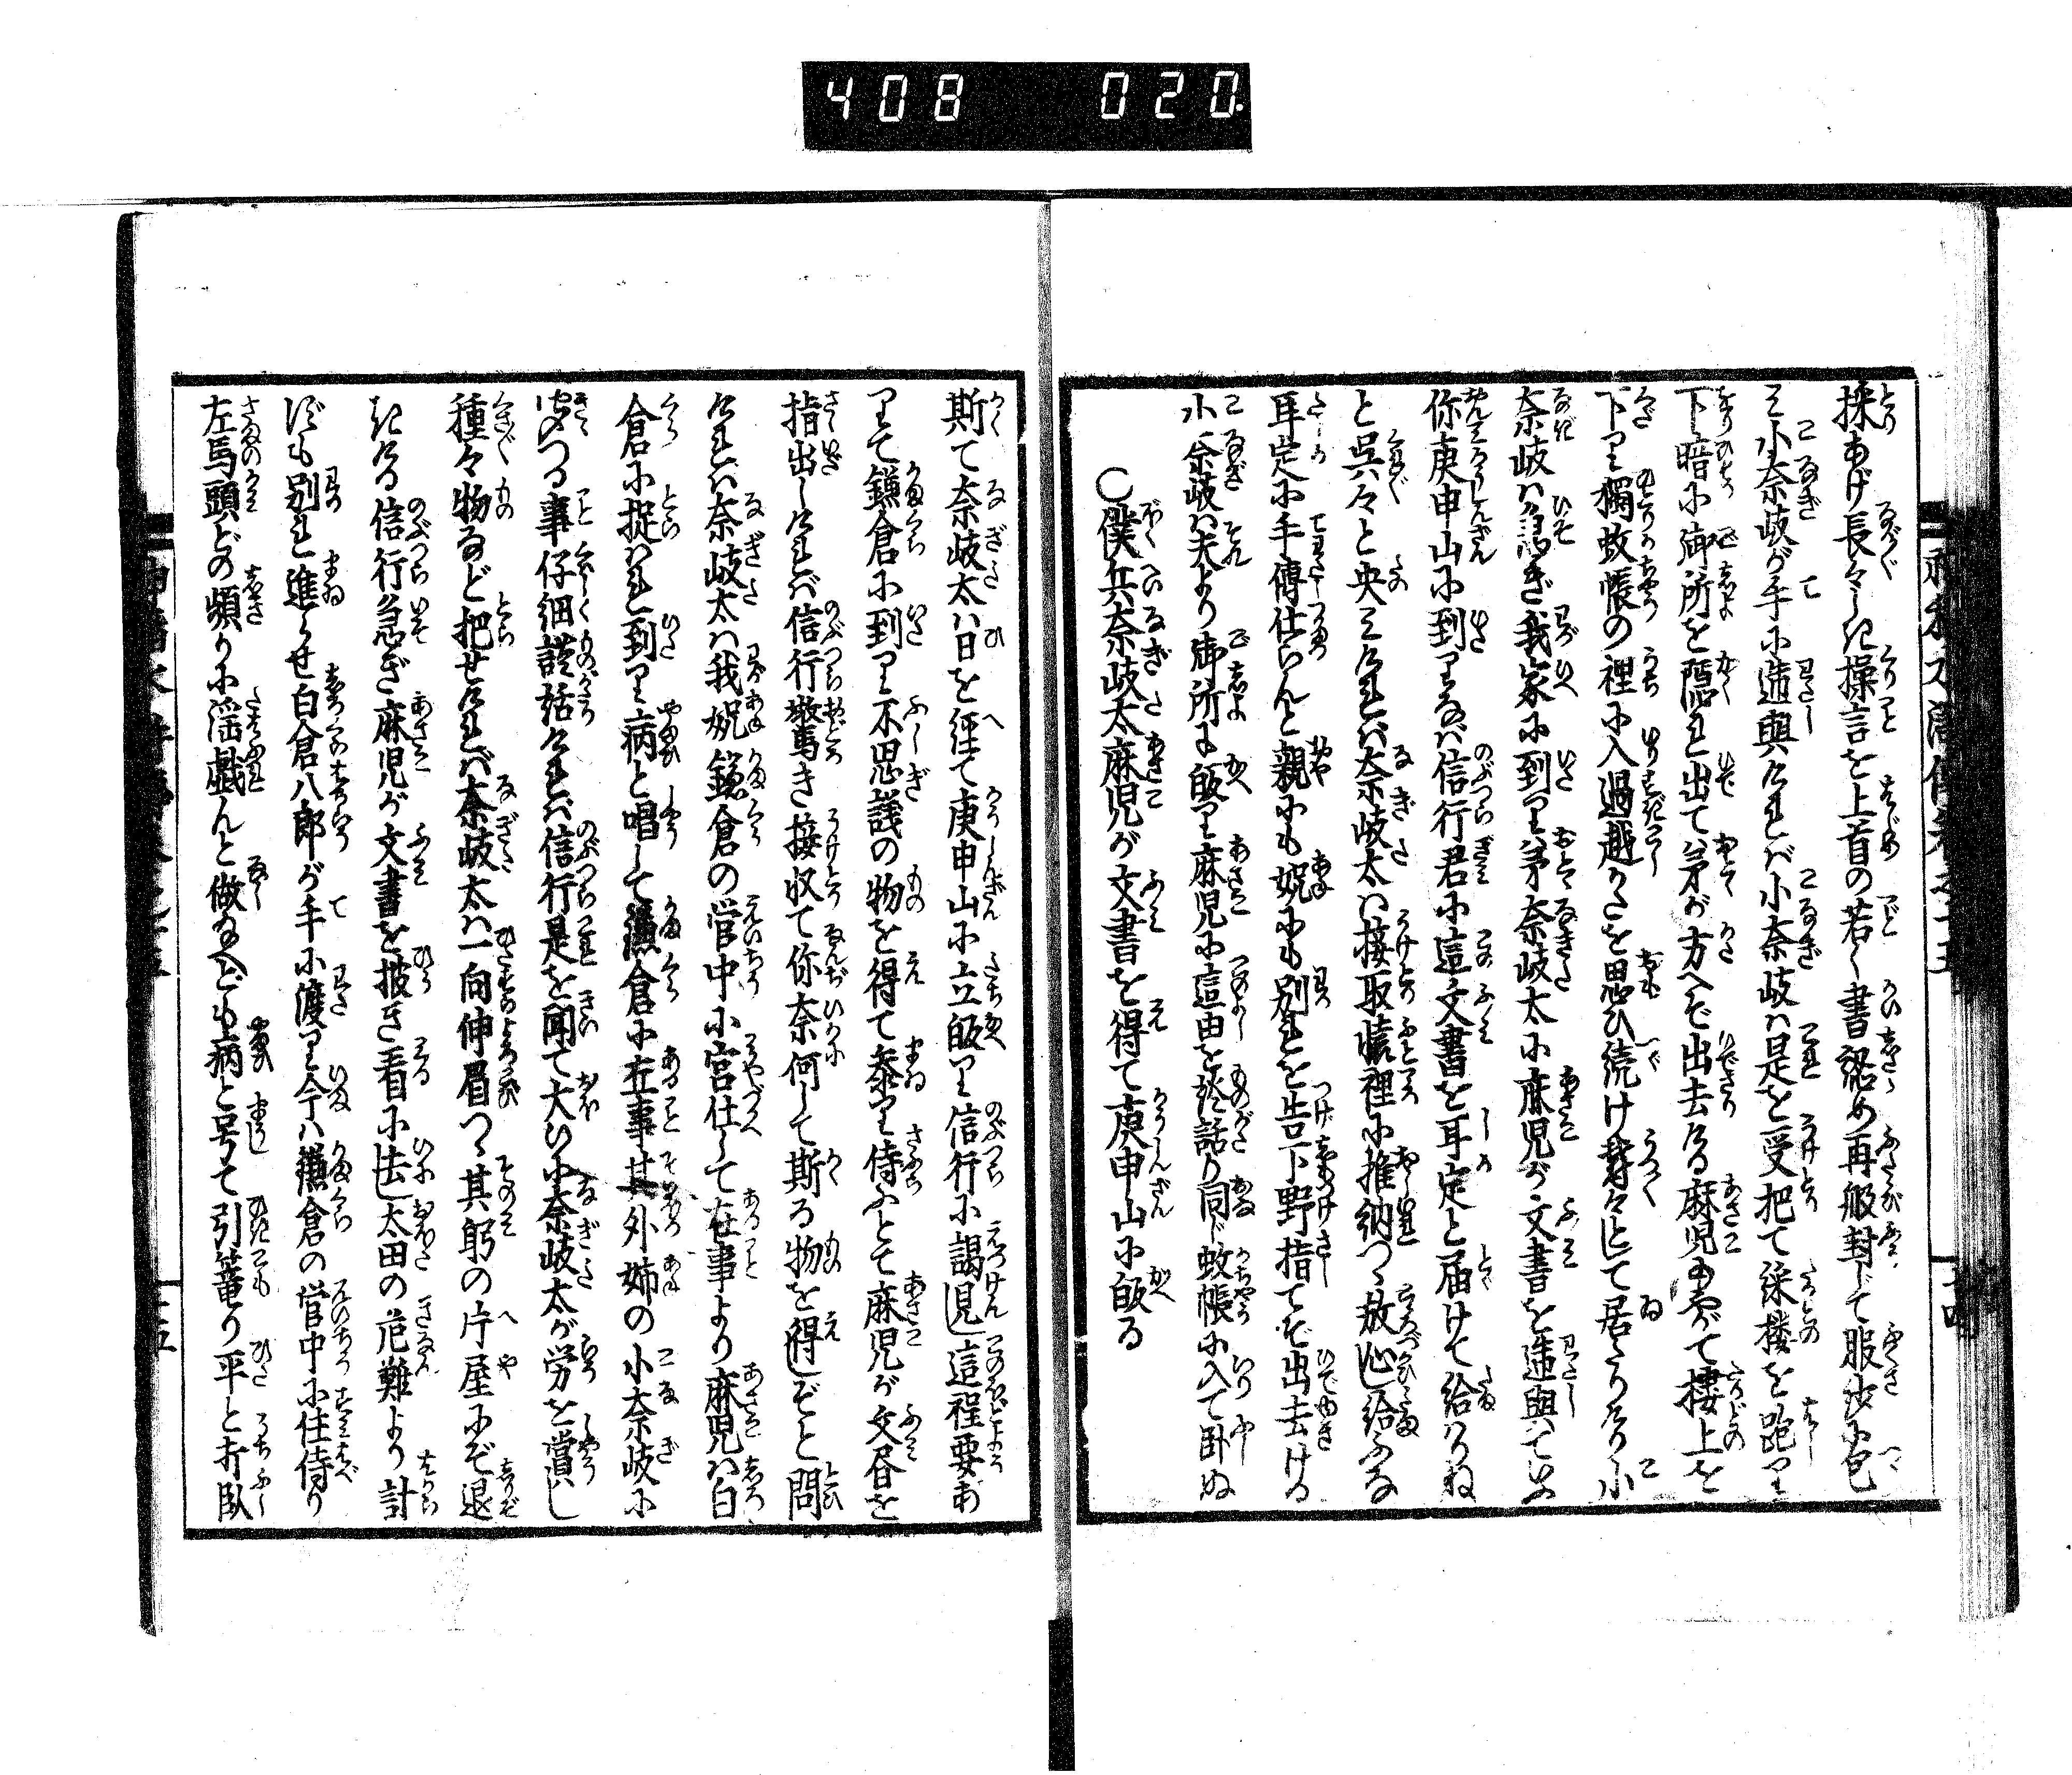 408 020.
採あげ長々しき操言を上首の若く書認め再般封じて服沙に包
み小奈岐が手に逓與ければ小奈岐は是を受把て梁楼を跑り
下暗に御所を隠れ出て弟が方へぞ出去る麻児もやがて楼上を
下り獨蚊帳の裡に入過越かたを思ひ続け欝々として居たりけり小
奈岐は急ぎ我家に到り弟奈岐太に麻児が文書を逓與ていふ
你庚申山に到りなば信行君に這文書を耳定と届けて給はりね
と呉々と央みければ奈岐太は接取懐裡に推納つゝ放心給ふな
耳定に手傳仕らんと親にも姉にも別れを告下野指てぞ出去ける
小奈岐は夫より御所に皈り麻児に這由を物話り同じ蚊帳に入て臥ぬ
○僕兵奈岐太麻児が文書を得て庚申山に皈る
斯て奈岐太は日を経て庚申山に立皈り信行に謁見し這程要あ
りて鎌倉に到り不思議の物を得て参り侍ふとて麻児が文書を
指出しければ信行驚き接収て你奈何して斯る物を得しぞと問
ければ奈岐太は我姉鎌倉の営中に宮仕して在事より麻児は白
倉に捉はれ到り病と唱して鎌倉に在事其外姉の小奈岐に
聞つる事仔細に話ければ信行是を聞て大いに奈岐太が労を賞し
種々物など把せければ奈岐太は一向伸眉つゝ其躬の片屋にぞ退
きける信行急ぎ麻児が文書を披き看に去し太田の危難より計
ずも別れ進らせ白倉八郎が手に渡り今は鎌倉の営中に住侍り
左馬頭どの頻りに淫戯んと做なへども病と号て引篭り平と打臥